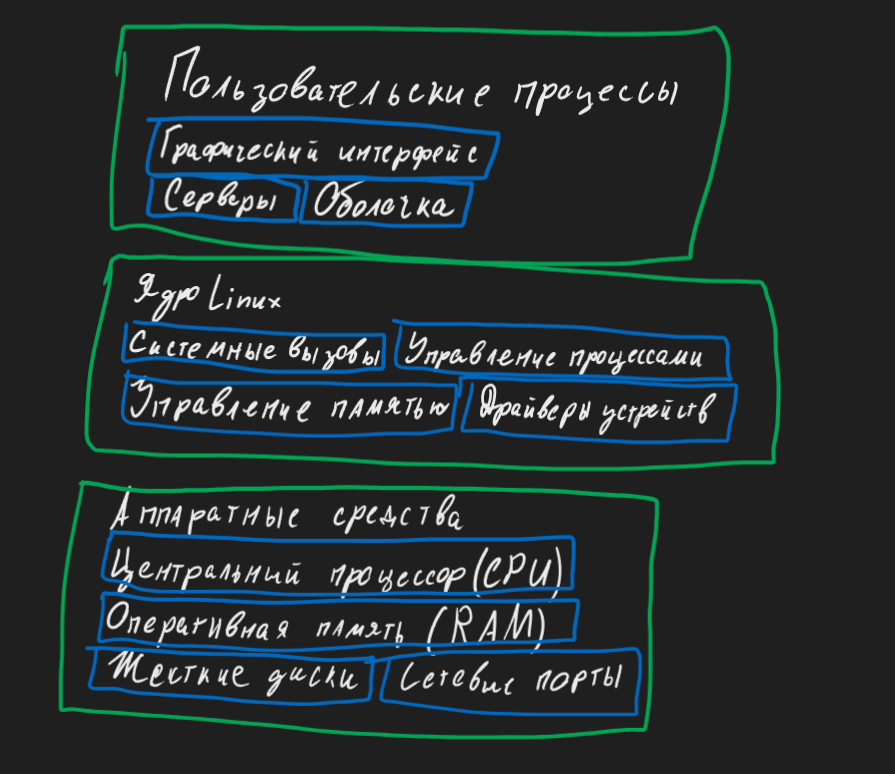 Пользовательские процессы
Графический интерфейс
Серверы Оболочка
Ядро Linux
Системные вызовы Управление процессами
Управление памятью Драйверы устрейств
Аппаратные средства
Центральный процессор (CPU)
Оперативная память (RAM)
Жесткие диски Сетевые порты